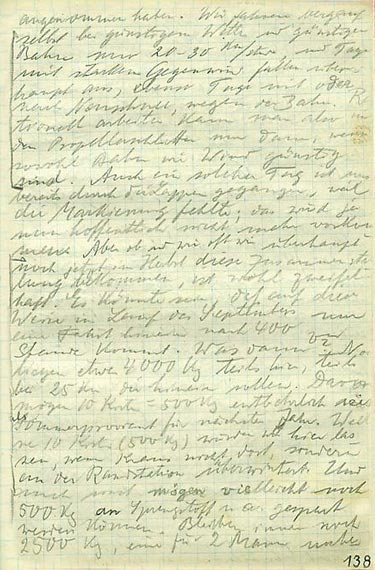 angenommen haben. Wir fahren bergauf
selbst bei günstigem Wetter u. günstiger
Bahn nur 20-30 Km/std und Tage
mit starkem Gegenwind fallen über-
haupt aus, ebenso Tage mit oder
nach Neuschnee, wegen der Bahn. Ra-
tionell arbeiten kann man also mit
den Propellerschlitten nur dann, wenn
sowohl Bahn wie Wind günstig
sind. Auch ein solcher Tag ist uns
bereits durch die Lappen gegangen, weil
die Markierung fehlte; das wird ja
nun hoffentlich nicht mehr vorkom-
men. Aber ob wir oft wie überhaupt
noch jetzt im Herbst diese Zusammenste-
lung bekommen, ist wohl zweifel-
haft. Es könnte sein, daß auf diese
Weise im Laufe des Septembers nur
eine Fahrt hinein nach 400
Stande kommt. Was dann
4000 Kg teils hier, teils
bei 25 den
mögen 10 Kist = 500 Kg entbehrlich
Sommerproviant für nächstes Jahr.
10 Kist. (500 Kg) würden ich hier las-
sen, wenn Kraus nicht dort, sondern
an der Randstation überwintert. Und
mögen vielleicht noch
500 Kg an Sprengstoff u.a. gespart
werden können. Bleiben immer noch
2500 Kg, eine für 2 Mann
138